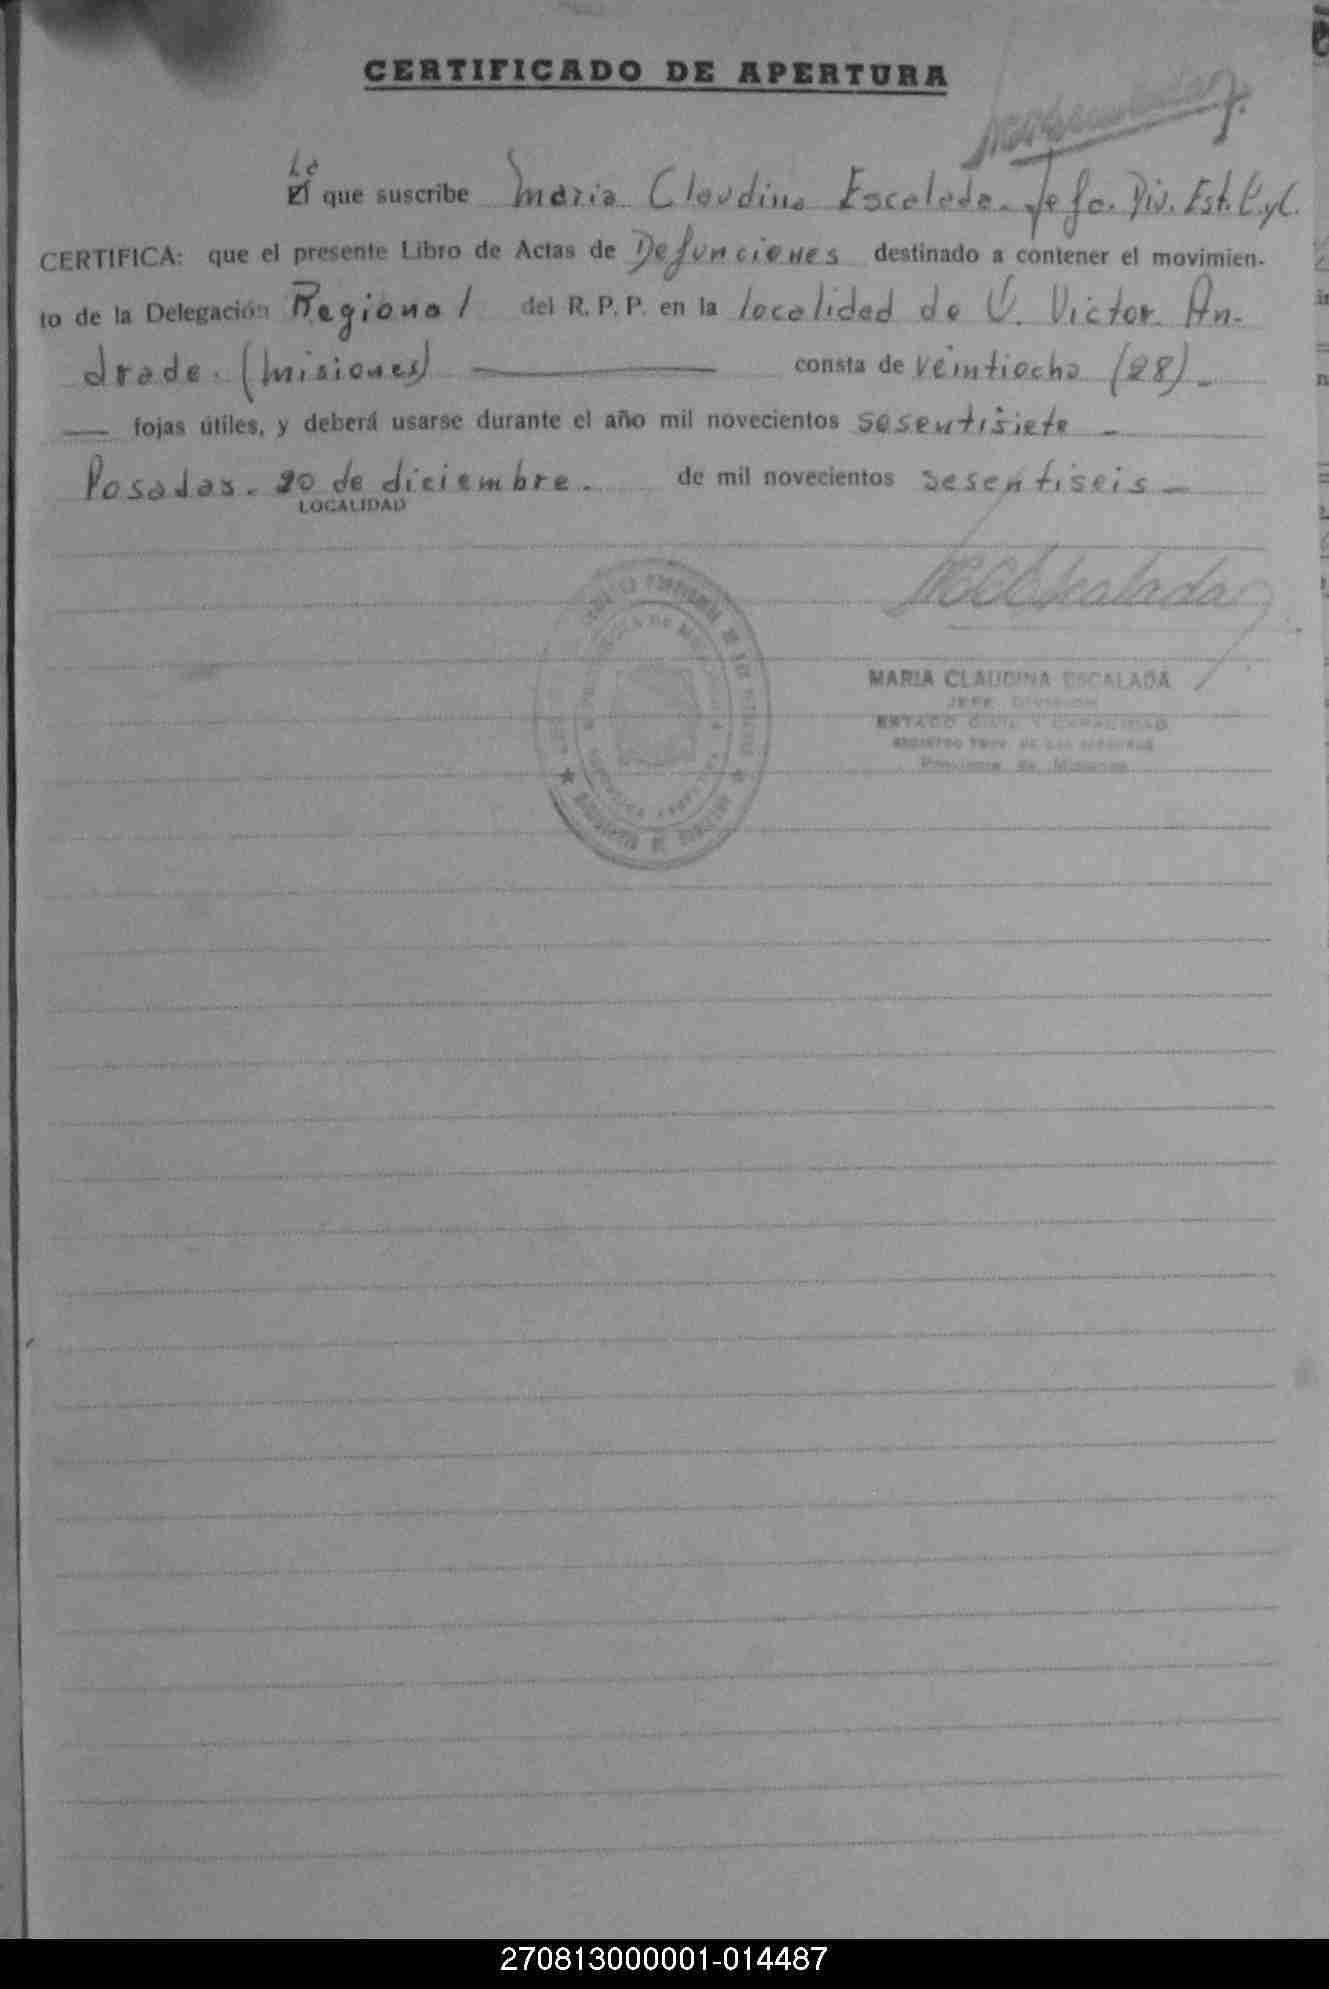 CERTIFICADO DE APERTURA
MCEscalada
La
El que suscribe Maria Claudina Escalada. Jefa. Div. Est. C. y C.
CERTIFICA: que el presente Libro de Actas de Defunciones destinado a contener el movimien-
to de la Delegación Regional del R. P. P. en la localidad de C. Victor An-
drade. (Misiones) consta de veintiocho (28) -
fojas útiles, y deberá usarse durante el año mil novecientos sesentisiete -
Posadas. 20 de diciembre. de mil novecientos sesentiseis -
LOCALIDAD
MCEscalada
MARIA CLAUDINA ESCALADA
JEFE DIVISION
ESTADO CIVIL Y CAPACIDAD
REGISTRO PROV. DE LAS PERSONAS
Provincia de Misiones
270813000001-014487